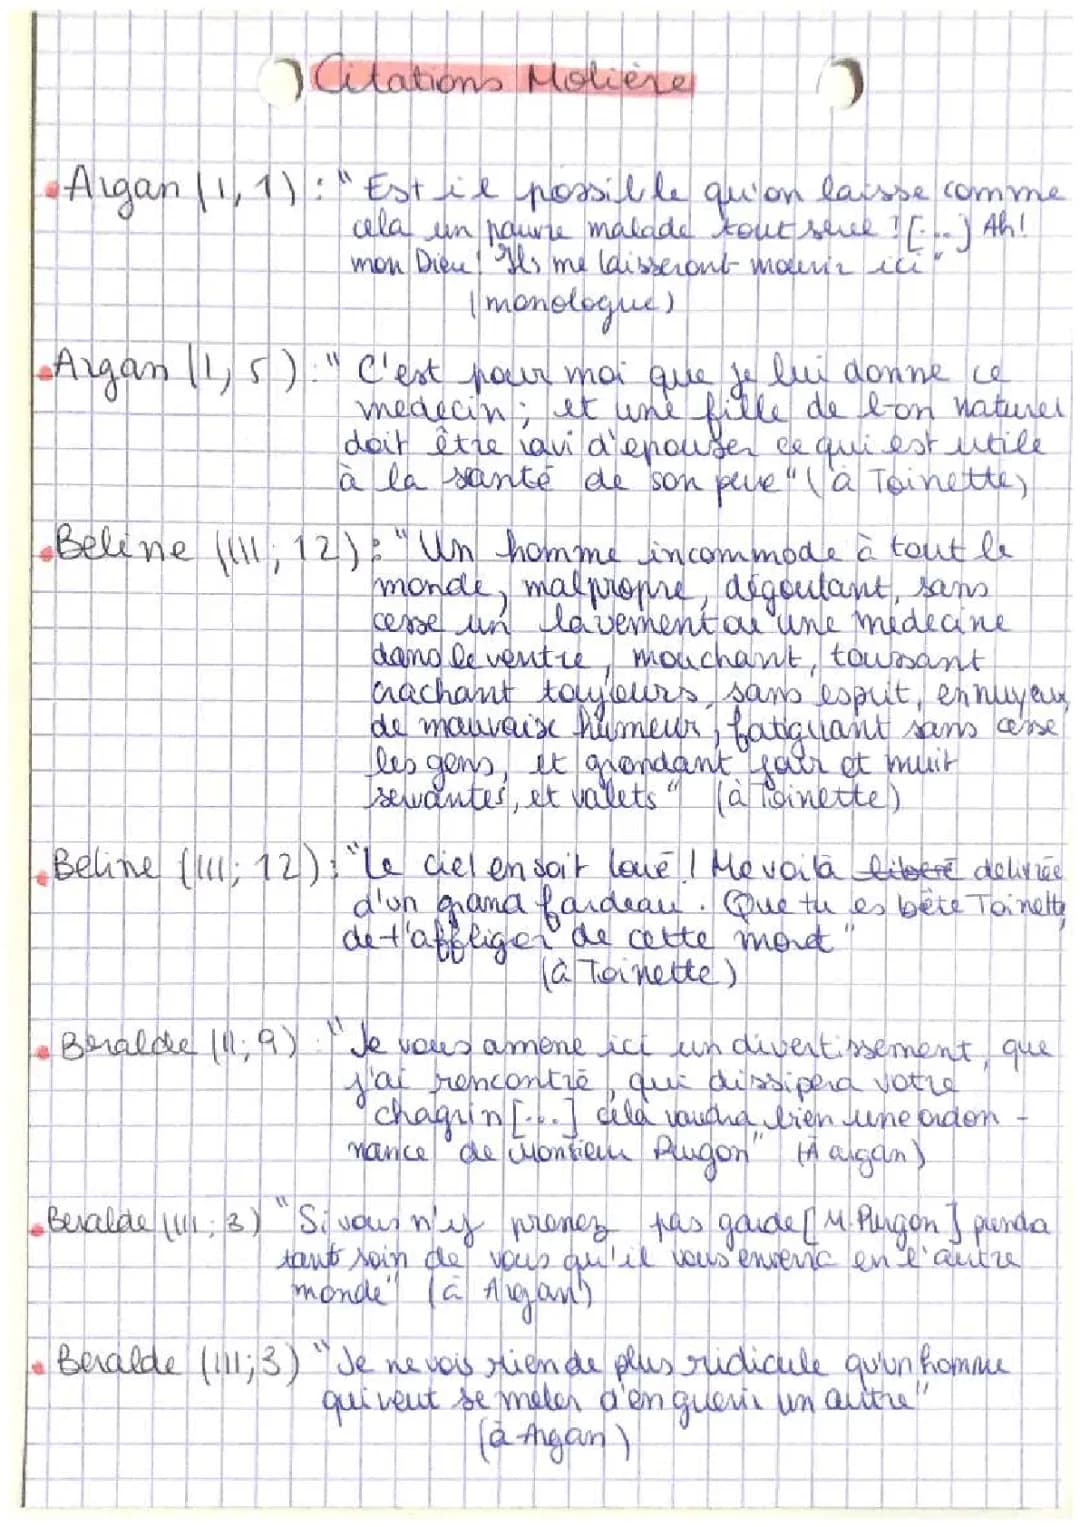 Citations Molière
• Argan (I, 1) : "Est il possible qu'on laisse comme
cela un pauvre malade tout seul ! [...] Ah!
mon Dieu ! Ils me laisseront mourir ici"
(monologue)
• Argan (I, 5) : "C'est pour moi que je lui donne ce
medecin ; et une fille de bon naturel
doit être ravi d'epouser ce qui est utile
à la santé de son père" (à Toinette)
• Beline (III; 12) : "Un homme incommode à tout le
monde, malpropre, dégoutant, sans
cesse un lavement ou une médecine
dans le ventre, mouchant, toussant
crachant toujours, sans esprit, ennuyeux
de mauvaise humeur, fatiguant sans cesse
les gens, et grondant jour et nuit
servantes, et valets" (à Toinette)
• Beline (III; 12) : "Le ciel en soit loué ! Me voilà libéré delivrée
d'un grand fardeau. Que tu es bête Toinette
de t'affliger de cette mort"
(à Toinette)
• Beralde (II; 9) : "Je vous amene ici un divertissement, que
j'ai rencontré, qui dissipera votre
chagrin [...] cela vaudra bien une ordon-
nance de Monsieur Purgon" (À argan)
• Beralde (III; 3) "Si vous n'y prenez pas garde [M. Purgon] prendra
tant soin de vous qu'il vous enverra en l'autre
monde" (à Argan)
• Beralde (III; 3) "Je ne vois rien de plus ridicule qu'un homme
qui veut se meler d'en guerir un autre"
(à Argan)